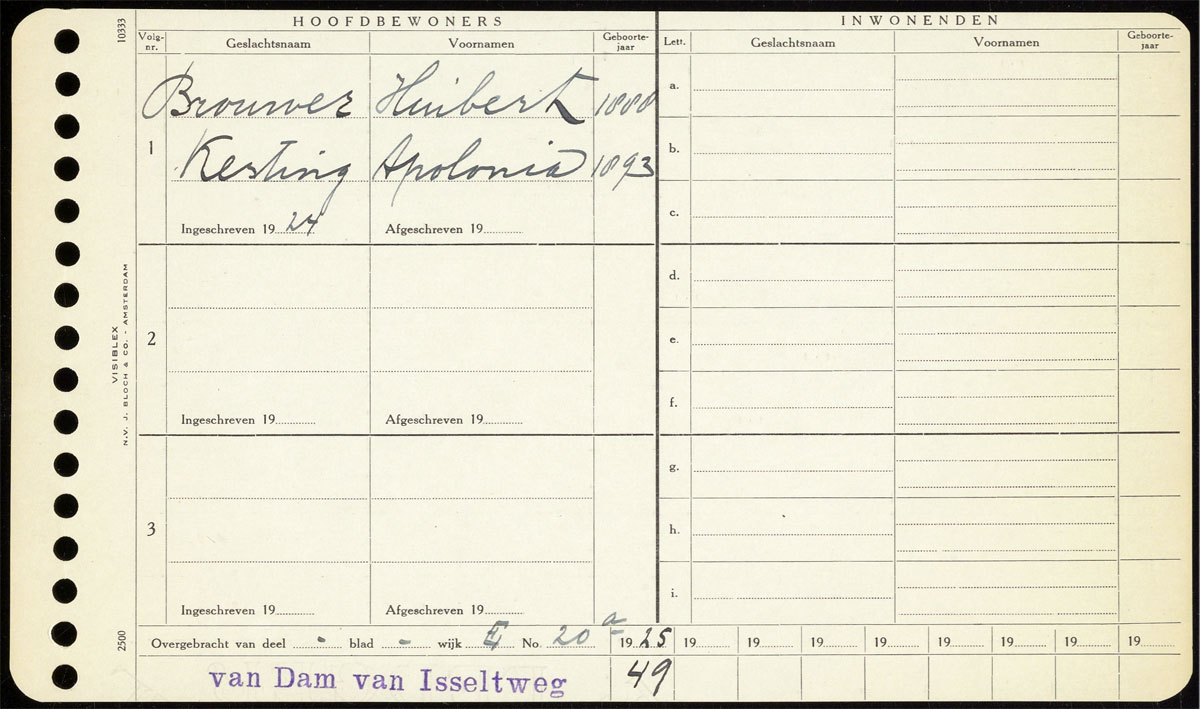 10333
HOOFDBEWONERS
INWONENDEN
Volg-nr. Geslachtsnaam Voornamen Geboorte-jaar Lett. Geslachtsnaam Voornamen Geboorte-jaar
Brouwer Huibert 1888
1
Kesting Apolonia 1893
Ingeschreven 19 24 Afgeschreven 19
a.
b.
c.
2
Ingeschreven 19 Afgeschreven 19
d.
e.
f.
3
Ingeschreven 19 Afgeschreven 19
g.
h.
i.
VISIBLEX
N.V. J. BLOCH & CO. - AMSTERDAM
2500
Overgebracht van deel - blad - wijk E No. 20 a 19 25 19 19 19 19 19 19 19 19
van Dam van Isseltweg 49